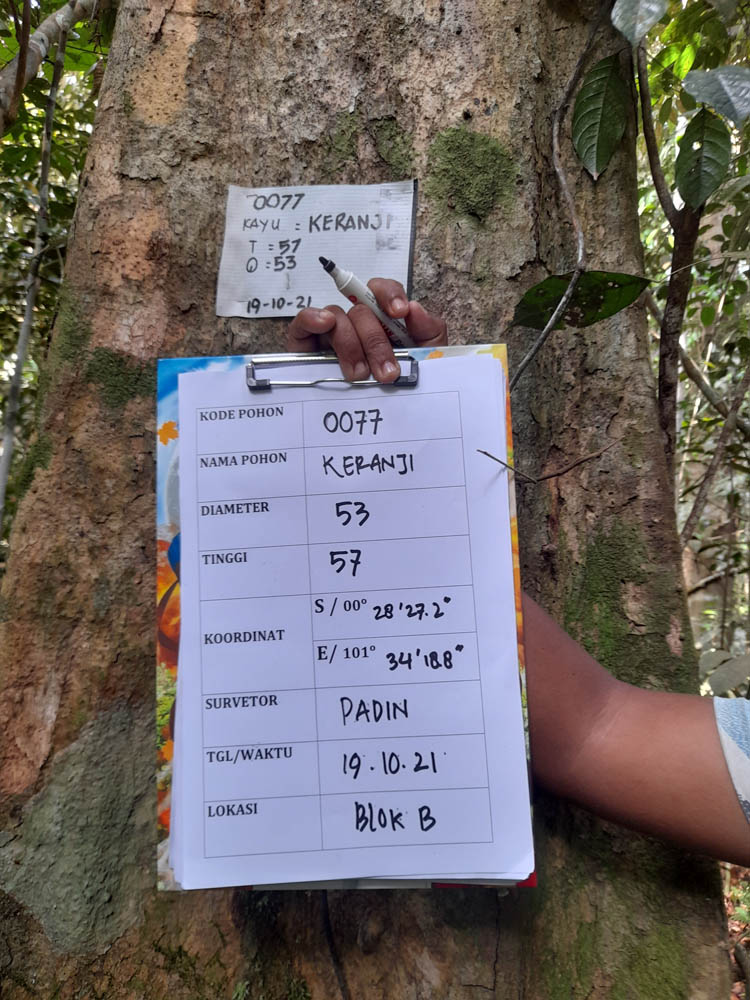 0077
KAYU = KERANJI
T = 57
Q = 53
19-10-21
KODE POHON 0077
NAMA POHON KERANJI
DIAMETER 53
TINGGI 57
KOORDINAT S / 00° 28'27.2"
E/ 101° 34'18.8"
SURVETOR PADIN
TGL/WAKTU 19.10.21
LOKASI BLOK B